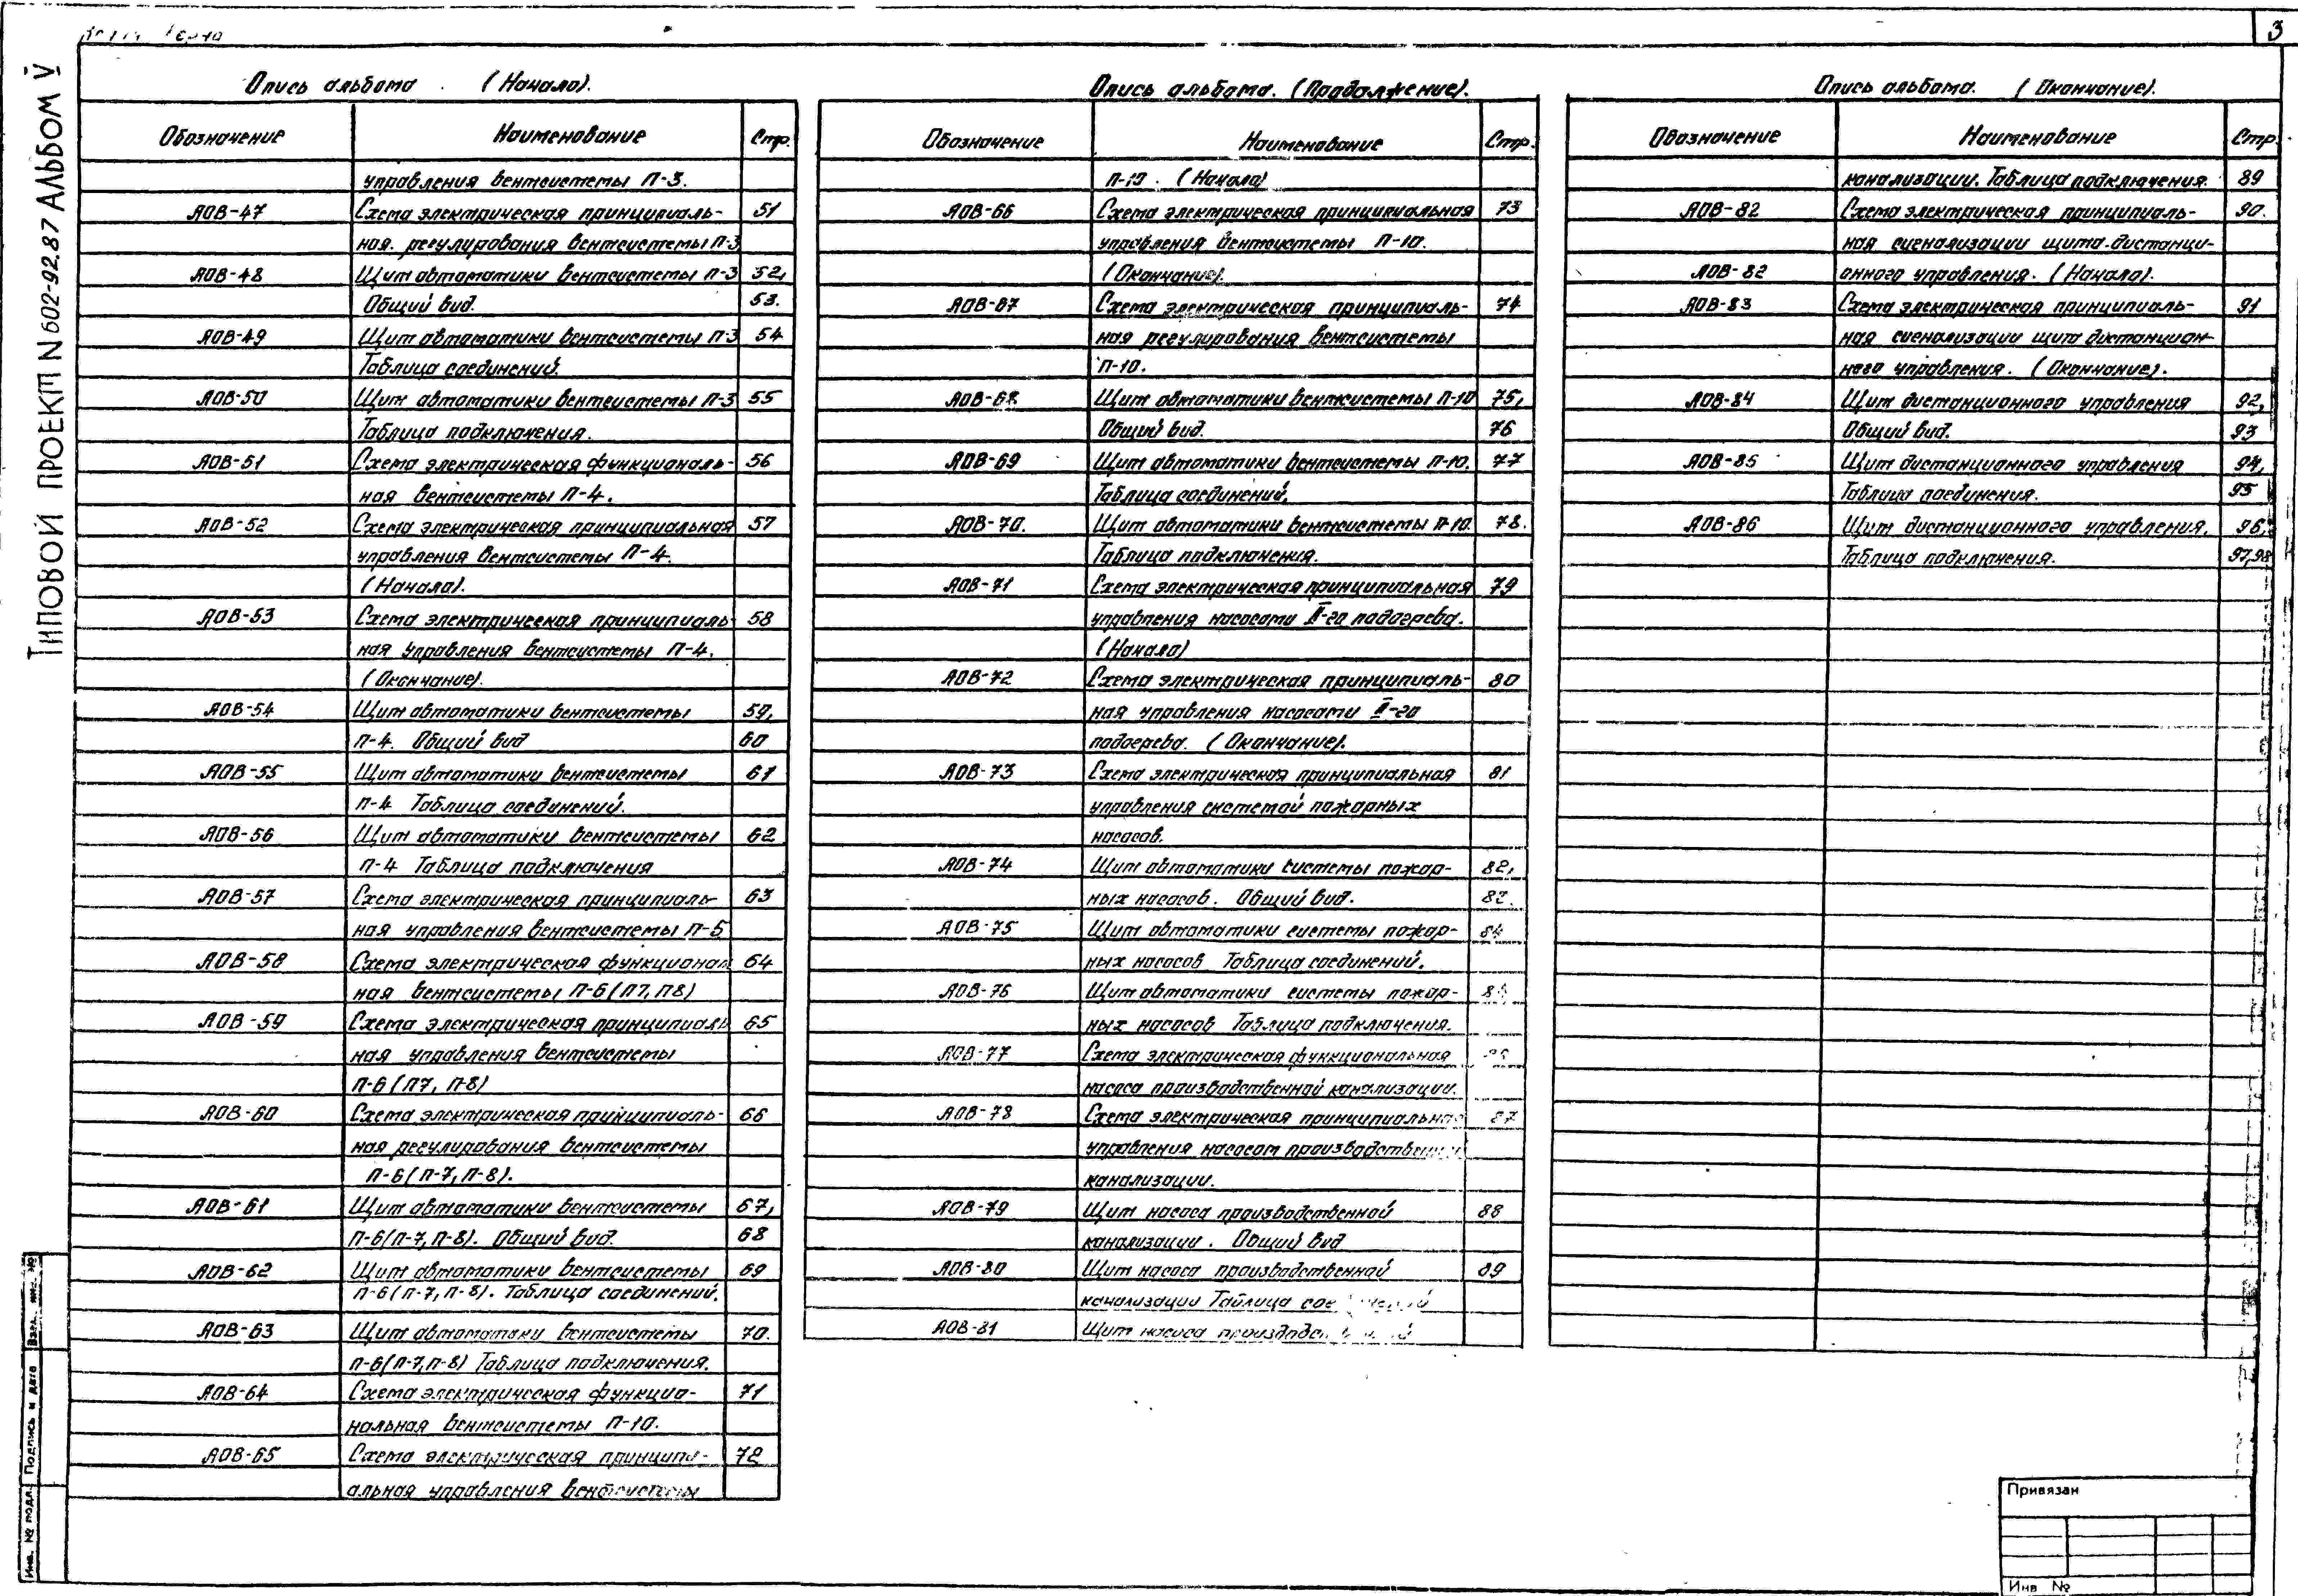 3
ТИПОВОЙ ПРОЕКТ N 602-92.87 АЛЬБОМ V
Опись альбома (Начало).
Обозначение Наименование Стр.
управления вентсистемы П-3.
АОВ-47 Схема электрическая принципиаль- 51
ная. регулирования вентсистемы П-3
АОВ-48 Щит автоматики вентсистемы П-3 52,
Общий вид. 53.
АОВ-49 Щит автоматики вентсистемы П-3 54
Таблица соединений.
АОВ-50 Щит автоматики вентсистемы П-3 55
Таблица подключения.
АОВ-51 Схема электрическая функциональ- 56
ная вентсистемы П-4.
АОВ-52 Схема электрическая принципиальная 57
управления вентсистемы П-4.
(Начало).
АОВ-53 Схема электрическая принципиаль- 58
ная управления вентсистемы П-4.
(Окончание).
АОВ-54 Щит автоматики вентсистемы 59,
П-4. Общий вид 60
АОВ-55 Щит автоматики вентсистемы 61
П-4 Таблица соединений.
АОВ-56 Щит автоматики вентсистемы 62
П-4 Таблица подключения
АОВ-57 Схема электрическая принципиаль- 63
ная управления вентсистемы П-5
АОВ-58 Схема электрическая функционал 64
ная вентсистемы П-6 (П7, П8)
АОВ-59 Схема электрическая принципиаль 65
ная управления вентсистемы
П-6 (П7, П-8)
АОВ-60 Схема электрическая принципиаль- 66
ная регулирования вентсистемы
П-6 (П-7, П-8).
АОВ-61 Щит автоматики вентсистемы 67,
П-6(П-7, П-8). Общий вид. 68
АОВ-62 Щит автоматики вентсистемы 69
П-6 (П-7, П-8). Таблица соединений.
АОВ-63 Щит автоматики вентсистемы 70.
П-6(П-7, П-8) Таблица подключения.
АОВ-64 Схема электрическая функцио- 71
нальная вентсистемы П-10.
АОВ-65 Схема электрическая принципи- 72
альная управления вентсистемы
Опись альбома. (Продолжение).
Обозначение Наименование Стр.
П-10. (Начало)
АОВ-66 Схема электрическая принципиальная 73
управления вентсистемы П-10.
(Окончание).
АОВ-67 Схема электрическая принципиаль- 74
ная регулирования вентсистемы
П-10.
АОВ-68 Щит автоматики вентсистемы П-10 75,
Общий вид. 76
АОВ-69 Щит автоматики вентсистемы П-10. 77
Таблица соединений.
АОВ-70. Щит автоматики вентсистемы П-10. 78.
Таблица подключения.
АОВ-71 Схема электрическая принципиальная 79
управления насосами II-го подогрева.
(Начало)
АОВ-72 Схема электрическая принципиаль- 80
ная управления насосами II-го
подогрева. (Окончание).
АОВ-73 Схема электрическая принципиальная 81
управления системой пожарных
насосов.
АОВ-74 Щит автоматики системы пожар- 82,
ных насосов. Общий вид. 83.
АОВ-75 Щит автоматики системы пожар- 84
ных насосов Таблица соединений.
АОВ-76 Щит автоматики системы пожар-
ных насосов Таблица подключения.
АОВ-77 Схема электрическая функциональная
насоса производственной канализации.
АОВ-78 Схема электрическая принципиальная 87
управления насосом производственной
канализации.
АОВ-79 Щит насоса производственной 88
канализации. Общий вид
АОВ-80 Щит насоса производственной 89
канализации Таблица соединений
АОВ-81 Щит насоса производственной
Опись альбома. (Окончание).
Обозначение Наименование Стр
канализации. Таблица подключения. 89
АОВ-82 Схема электрическая принципиаль- 90.
ная сигнализации щита дистанци-
АОВ-82 онного управления. (Начало).
АОВ-83 Схема электрическая принципиаль- 91
ная сигнализации щита дистанцион-
ного управления. (Окончание).
АОВ-84 Щит дистанционного управления 92,
Общий вид. 93
АОВ-85 Щит дистанционного управления 94,
Таблица соединения. 95
АОВ-86 Щит дистанционного управления. 96,
Таблица подключения. 97,98
Привязан
Инв №
Инв. № подл. Подпись и дата Взам. инв. №